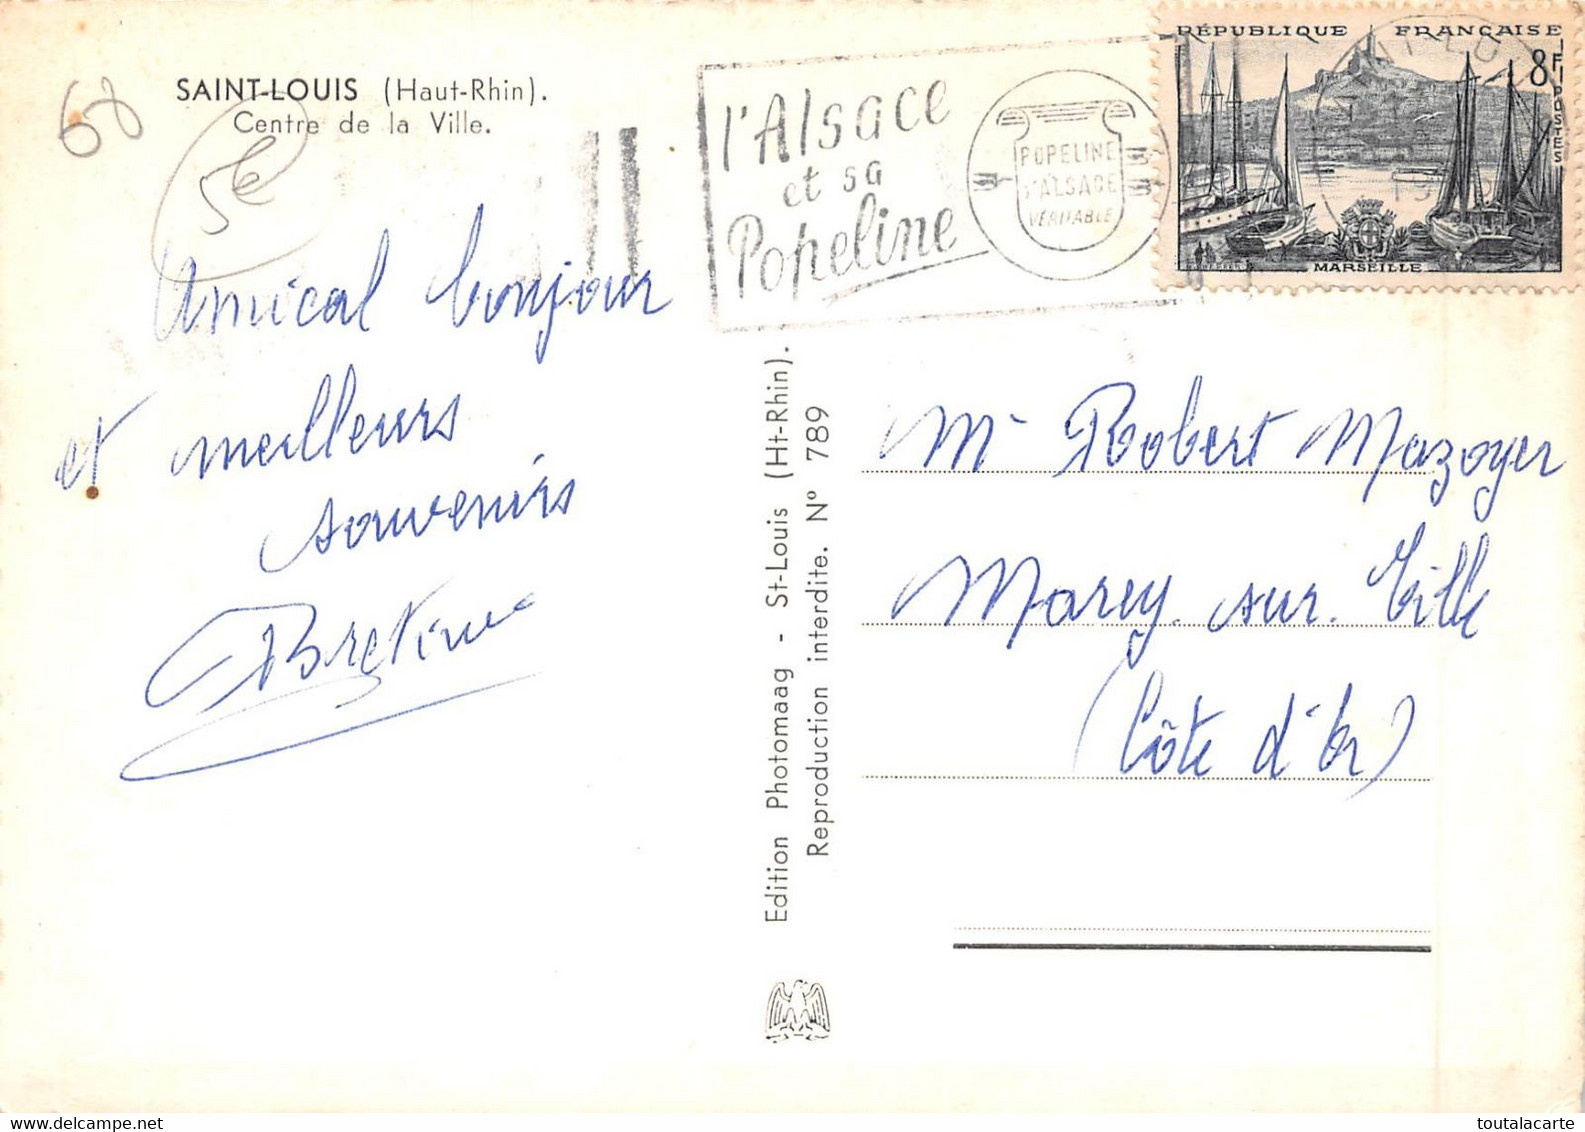 SAINT-LOUIS (Haut-Rhin).
Centre de la Ville.
68
5e
Amical bonjour
et meilleurs
souvenirs
l'Alsace
et sa
Popeline
POPELINE
D'ALSACE
VÉRITABLE
RÉPUBLIQUE FRANÇAISE
8F
POSTES
MARSEILLE
Edition Photomaag - St-Louis (Ht-Rhin).
Reproduction interdite. N° 789
Mr Robert Mazoyer
Marey. sur. Tille
(Côte d'Or)
toutalacarte